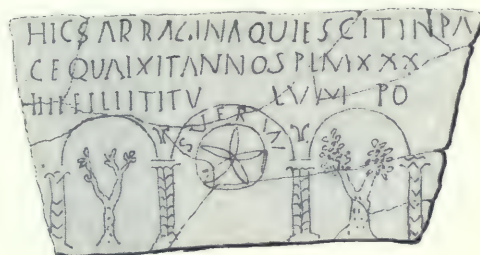 HIC SARRAGINA QUIESCIT IN PA
CE QUAIXIT ANNOS PLMXXX
IIII TITV LVM PO